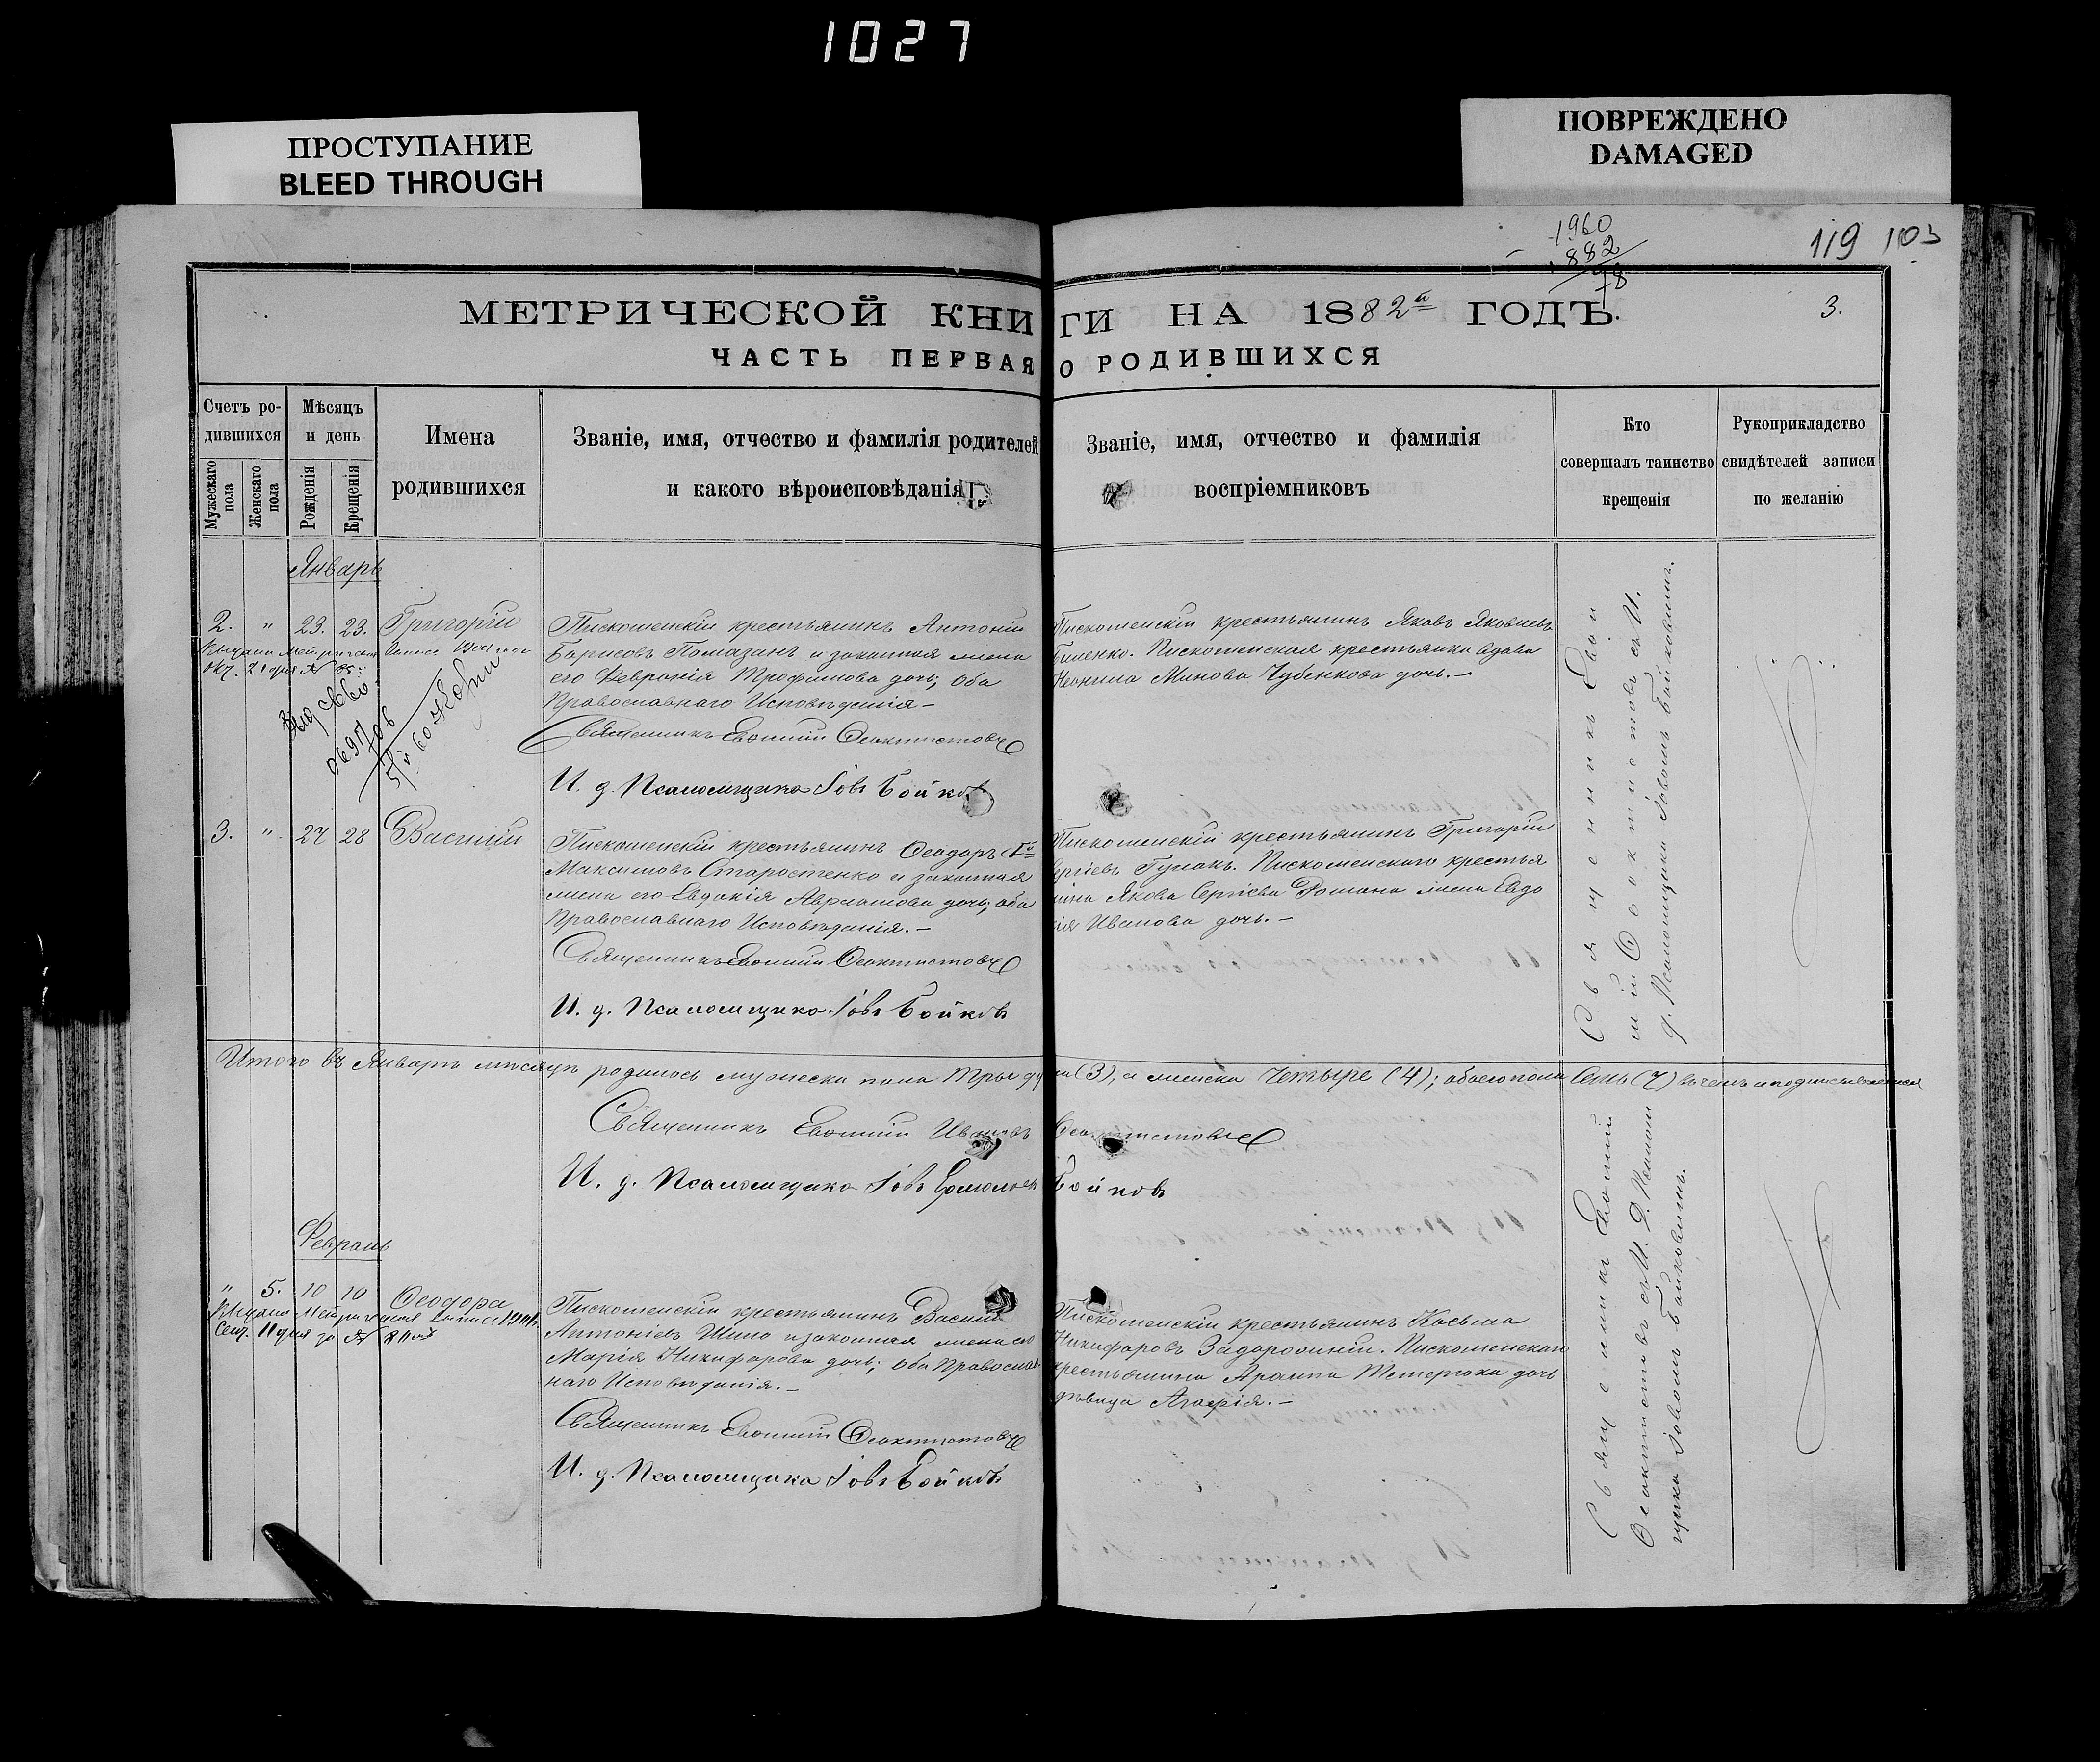 1027
ПРОСТУПАНИЕ
BLEED THROUGH
ПОВРЕЖДЕНО
DAMAGED
1960
882
78
119 103
МЕТРИЧЕСКОЙ КНИГИ НА 1882й ГОДЪ.
3.
ЧАСТЬ ПЕРВАЯ О РОДИВШИХСЯ
Счетъ родившихся
Мужескаго пола
Женскаго пола
Мѣсяцъ и день
Рожденія
Крещенія
Имена родившихся
Званіе, имя, отчество и фамилія родителей
и какого вѣроисповѣданія
Званіе, имя, отчество и фамилія
воспріемниковъ
Кто
совершалъ таинство
крещенія
Рукоприкладство
свидѣтелей записи
по желанію
Январь
2. " 23. 23. Григорій
Окт. 21 дня № 85
Пискошенскій крестьянинъ Антоній
Борисовъ Помазанъ и законная жена
его Февронія Трофимова дочь; оба
Православнаго Исповѣданія –
Священникъ Евѳимій Ѳеоктистовъ
И. д. Псаломщика Іовъ Бойковъ
Пискошенскій крестьянинъ Яковъ Яковлевъ
Биленко. Пискошенская крестьянка вдова
Неонила Минова Чубенкова дочь. –
3. " 27 28 Василій
Пискошенскій крестьянинъ Ѳеодоръ Iй
Максимовъ Старостенко и законная
жена его Евдокія Авраамова дочь; оба
Православнаго Исповѣданія. –
Священникъ Евѳимій Ѳеоктистовъ
И. д. Псаломщика Іовъ Бойковъ
Пискошенскій крестьянинъ Григорій
Сергіевъ Гулакъ. Пискошенскаго крестья
нина Якова Сергіева Романа жена Евдо
кія Иванова дочь. –
Священникъ Евѳи
мій Ѳеоктистовъ съ И.
д. Псаломщика Іовомъ Бойковымъ.
Итого въ Январѣ мѣсяцѣ родилось мужеска пола Три ду ша (3), а женска Четыре (4); обоего пола Семь (7) въ чемъ и подписываемся
Священникъ Евѳимій Ивановъ Ѳеоктистовъ
И. д. Псаломщика Іовъ Ермолаевъ Бойковъ
Февраль
" 5. 10 10 Ѳеодора
Пискошенскій крестьянинъ Василій
Антоніевъ Шило и законная жена его
Марія Никифорова дочь; оба Православ
наго Исповѣданія. –
Священникъ Евѳимій Ѳеоктистовъ
И. д. Псаломщика Іовъ Бойковъ
Пискошенскій крестьянинъ Косьма
Никифоровъ Задорожній. Пискошенскаго
крестьянина Архипа Тетерюка дочь
дѣвица Агафія. –
Священникъ Евѳимій
Ѳеоктистовъ съ И. Д. Псалом
щика Іовомъ Бойковымъ.